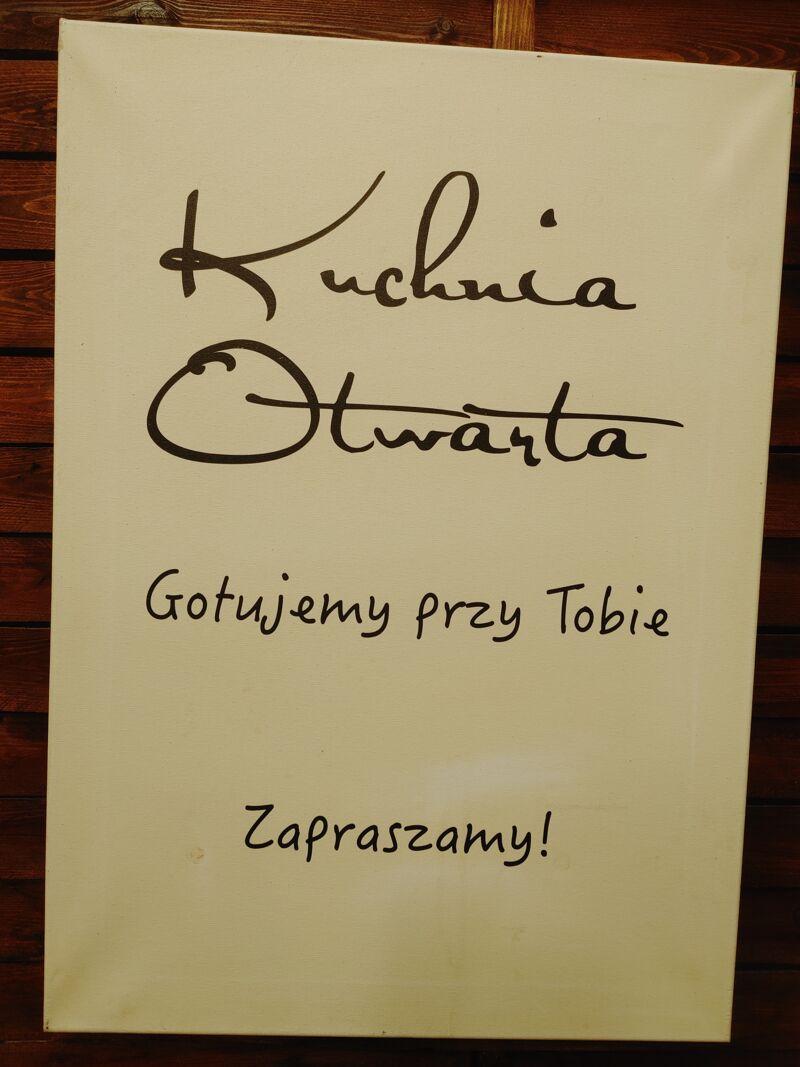 Kuchnia
Otwarta
Gotujemy przy Tobie
Zapraszamy!